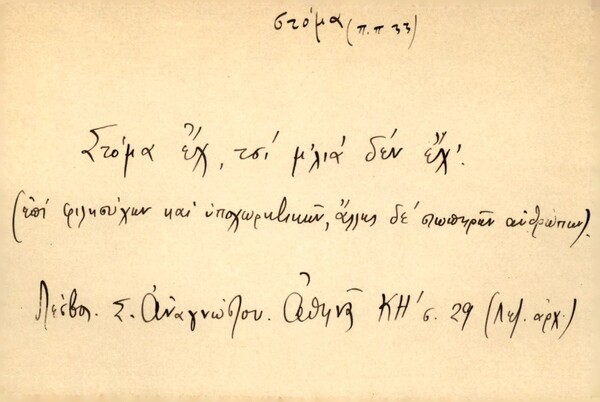 στόμα (π.π 33)
Στόμα ἔχ', τσί μ'λιά δέν ἔχ'.
(ἐπί φιλησύχων καί ὑποχωρητικῶν, ἄλλης δέ σιωπηρῶν ἀνθρώπων).
Λέσβος. Σ. Ἀναγνώστου. Ἀθηνᾶ ΚΗ' σ. 29 (Λεξ. ἀρχ.)